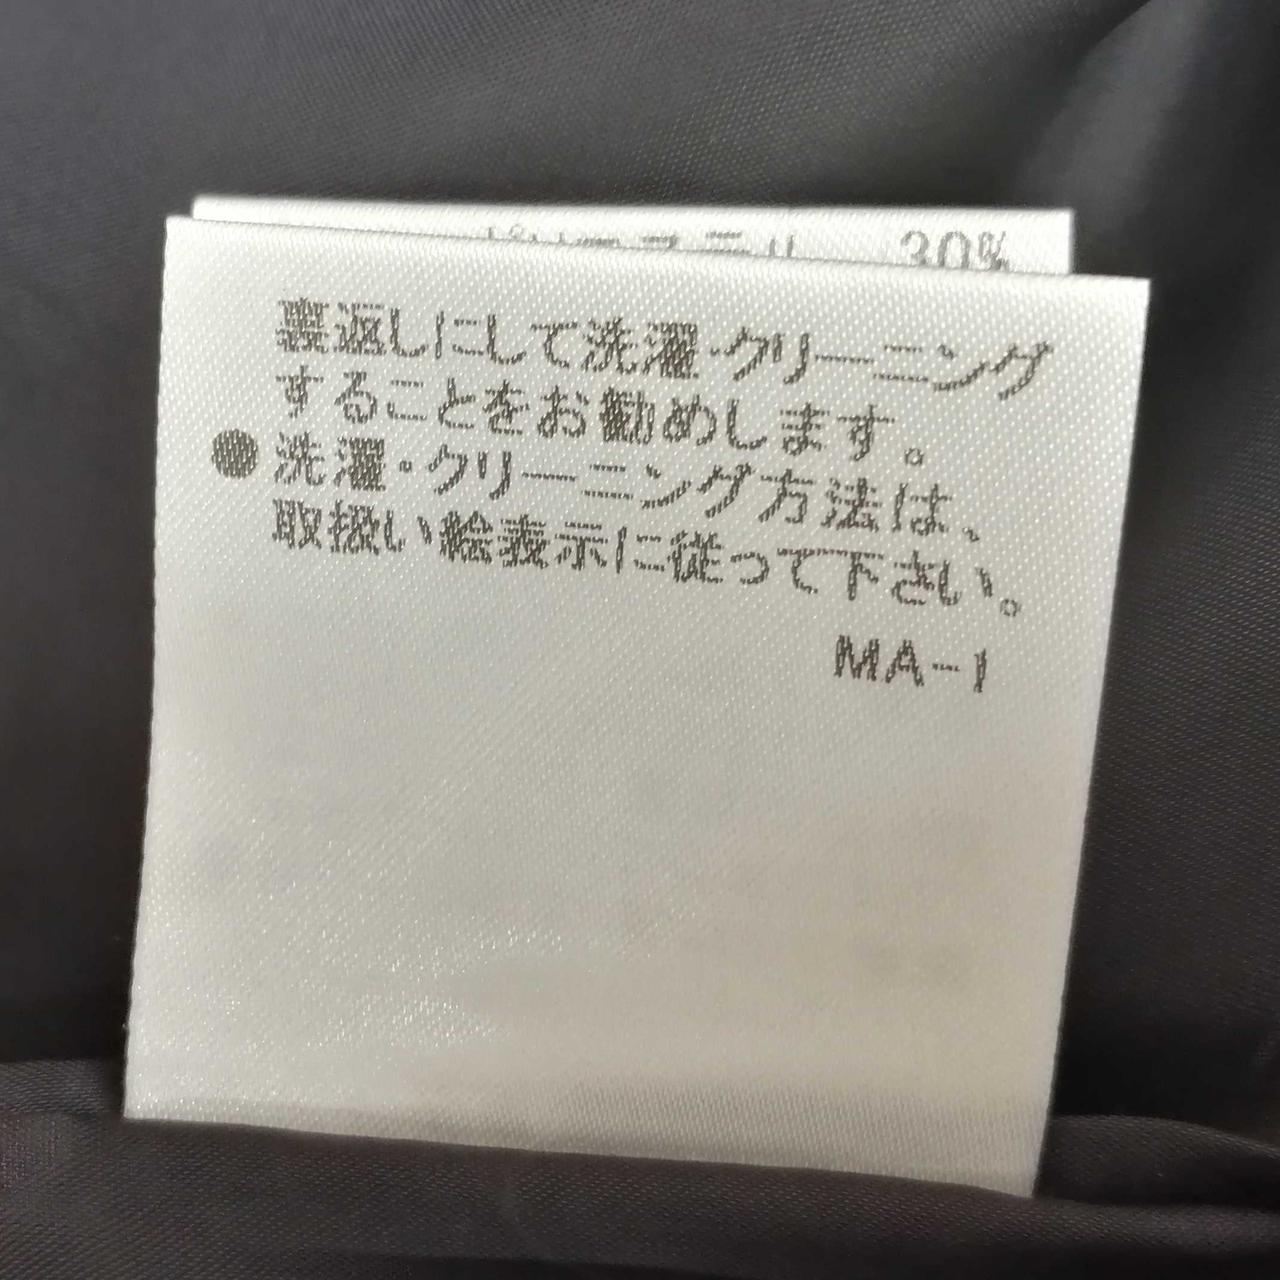 30%
裏返しにして洗濯・クリーニング
することをお勧めします。
●洗濯・クリーニング方法は、
取扱い絵表示に従って下さい。
MA-1